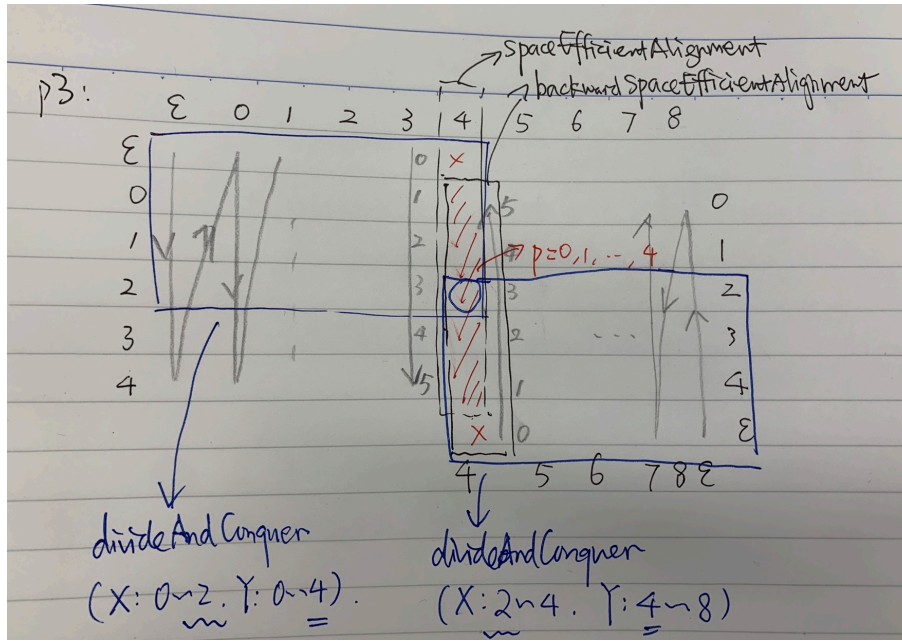 spaceEfficientAlignment
backwardSpaceEfficientAlignment
p3:
ε 0 1 2 3 4 5 6 7 8
ε 0 x
0 1 5 0
1 2 4 1
p=0,1,...,4
2 3 3 2
3 4 2 ... 3
4 5 1 4
x 0 ε
4 5 6 7 8 ε
divideAndConquer
(X: 0~2. Y: 0~4).
divideAndConquer
(X: 2~4. Y: 4~8)